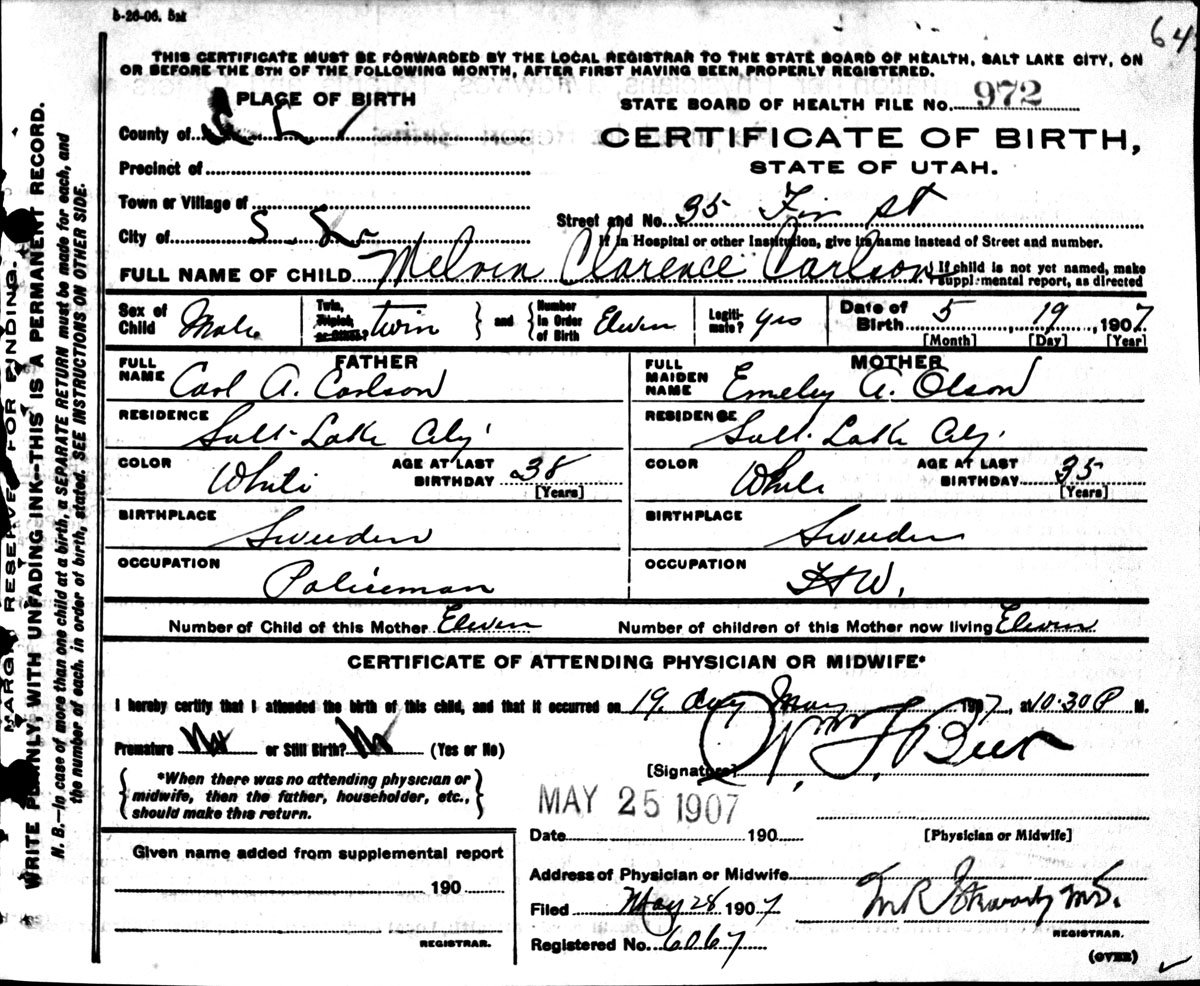 5-26-06. 5M
64
THIS CERTIFICATE MUST BE FORWARDED BY THE LOCAL REGISTRAR TO THE STATE BOARD OF HEALTH, SALT LAKE CITY, ON
OR BEFORE THE 5TH OF THE FOLLOWING MONTH, AFTER FIRST HAVING BEEN PROPERLY REGISTERED.
PLACE OF BIRTH
STATE BOARD OF HEALTH FILE NO. 972
County of S. L.
CERTIFICATE OF BIRTH,
STATE OF UTAH.
Precinct of
Town or Village of
Street and No. 35 Fir St
City of S. L.
If in Hospital or other Institution, give its name instead of Street and number.
FULL NAME OF CHILD Melvin Clarence Carlson
If child is not yet named, make supplemental report, as directed
Sex of Child Male
Twin, Triplet, or Other? twin
and
Number in Order of Birth Eleven
Legitimate? yes
Date of Birth 5 19, 1907
[Month] [Day] [Year]
FATHER
FULL NAME Carl A. Carlson
MOTHER
FULL MAIDEN NAME Emeley A. Olson
RESIDENCE Salt Lake City
RESIDENCE Salt Lake City
COLOR White
AGE AT LAST BIRTHDAY 38
[Years]
COLOR White
AGE AT LAST BIRTHDAY 35
[Years]
BIRTHPLACE Sweeden
BIRTHPLACE Sweeden
OCCUPATION Policeman
OCCUPATION H W.
Number of Child of this Mother Eleven
Number of children of this Mother now living Eleven
CERTIFICATE OF ATTENDING PHYSICIAN OR MIDWIFE*
I hereby certify that I attended the birth of this child, and that it occurred on 19. day May 1907, at 10.30 P M.
Premature No or Still Birth? No (Yes or No)
[Signature]
*When there was no attending physician or
midwife, then the father, householder, etc.,
should make this return.
MAY 25 1907
Date 190
[Physician or Midwife]
Given name added from supplemental report
190
REGISTRAR.
Address of Physician or Midwife
Filed May 28 1907
M.D.
REGISTRAR.
Registered No. 6067
(OVER)
MARGIN RESERVED FOR BINDING.
WRITE PLAINLY, WITH UNFADING INK—THIS IS A PERMANENT RECORD.
N. B.—In case of more than one child at a birth, a SEPARATE RETURN must be made for each, and
the number of each, in order of birth, stated. SEE INSTRUCTIONS ON OTHER SIDE.